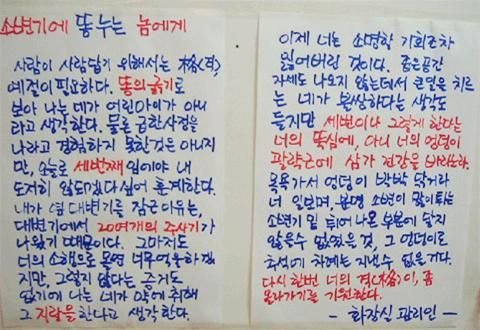 소변기에 똥누는 놈에게
사람이 사람답기 위해서는 格(격),
예절이 필요하다. 똥의 굵기로
보아 나는 네가 어린아이가 아니
라고 생각한다. 물론 급한사정을
나라고 경험하지 못한것은 아니지
만, 오늘로 세번째 임에야 내
도저히 않되겠다 싶어 훈계한다.
내가 옆 대변기를 잠근이유는,
대변기에서 20여개의 주사기가
나왔기 때문이다. 그마저도
너의 소행으로 몰면 너무억울하겠
지만, 그렇지 않다는 증거도
없기에 나는 네가 약에 취해
그 지랄을 한다고 생각한다.
이제 너는 소명할 기회조차
잃어버린 것이다. 좁은공간
자세도 나오지 않는데서 큰일을 치르
는 네가 환상하다는 생각도
들지만 세번이나 그렇게 한다는
너의 뚝심에, 아니 너의 엉덩이
괄약근에 삼가 건강을 바라노라.
목욕가서 엉덩이 박박 닦거라
너 일보며, 분명 소변이 많이튀는
소변기 밑 튀어 나온 부분에 닿지
않을수 없었을 것, 그 엉덩이로
추석에 차례는 지내수 없을거다.
다시한번 너의 격(格)이, 좀
올라가기를 기원한다.
- 화장실 관리인 -